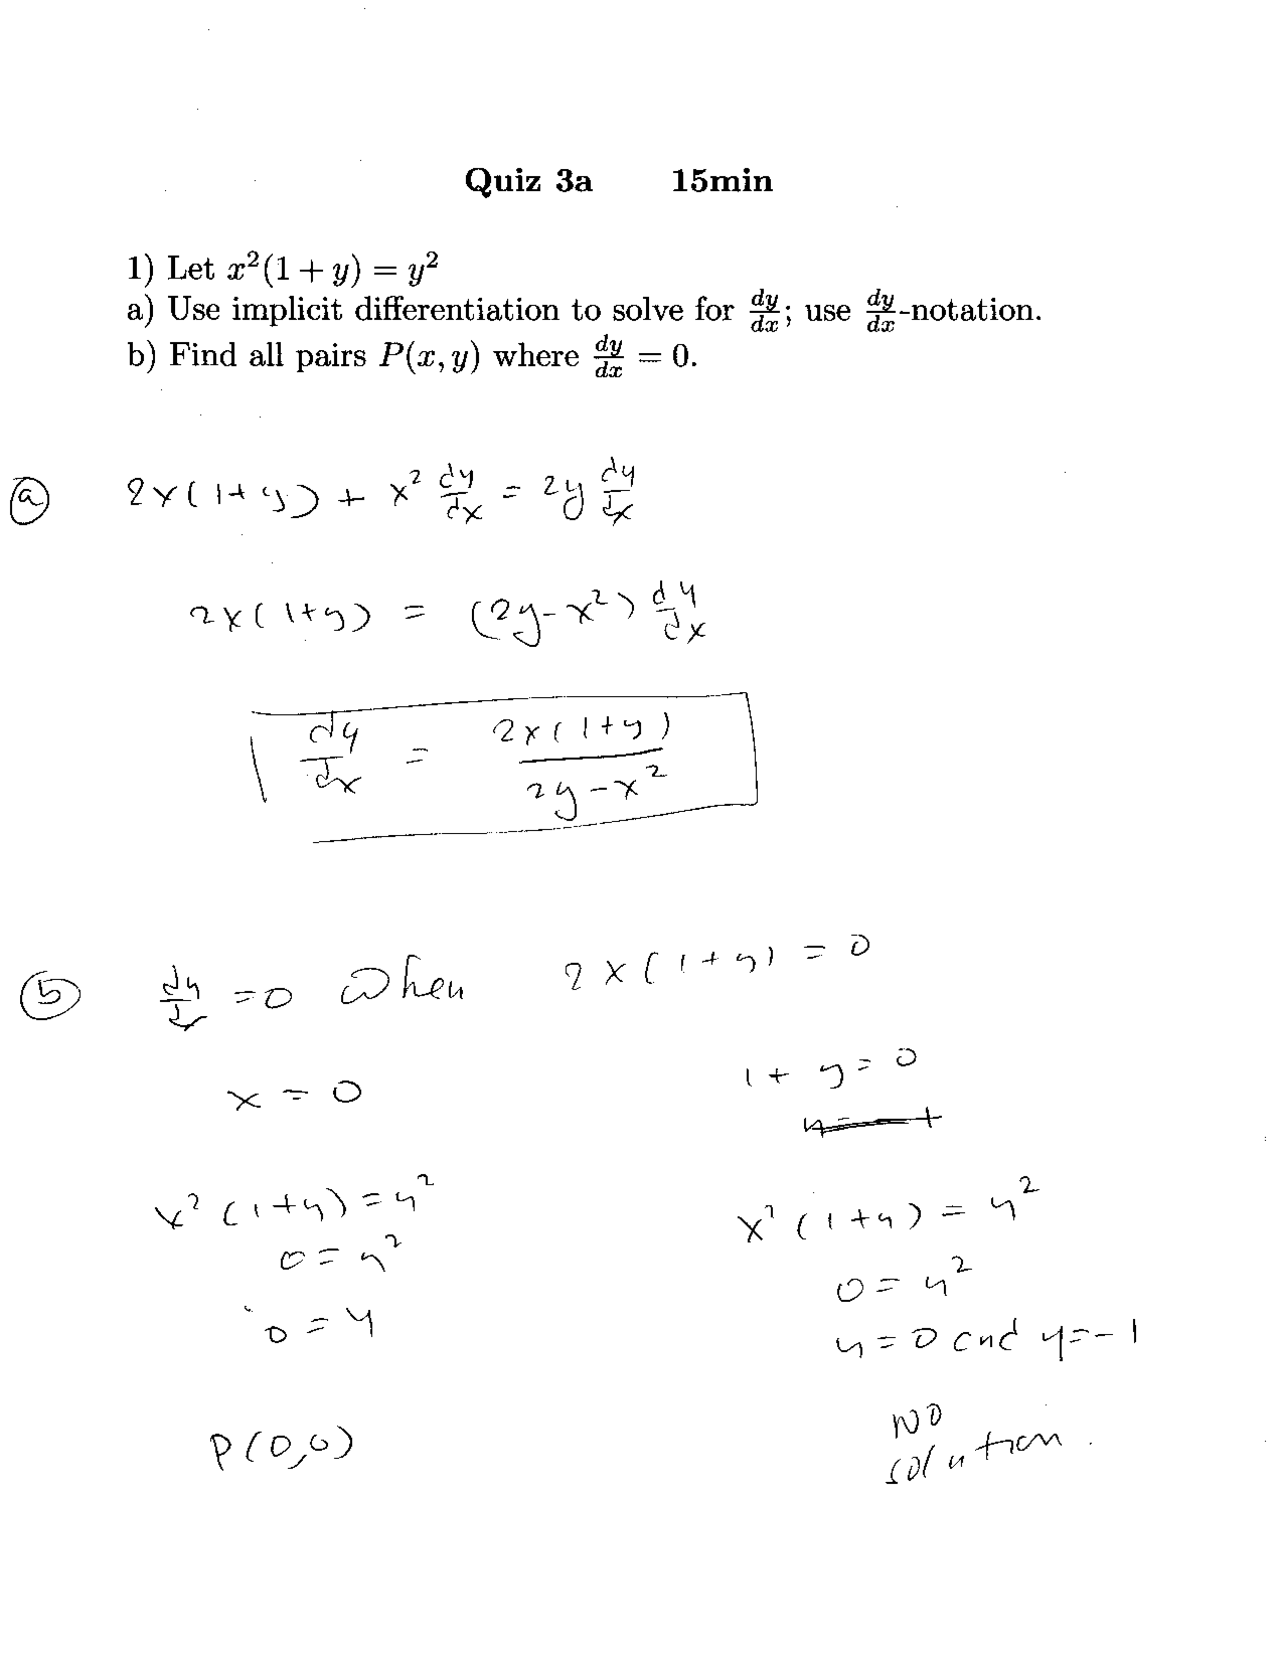 Quiz 3a 15min
1) Let x²(1 + y) = y²
a) Use implicit differentiation to solve for dy/dx; use dy/dx-notation.
b) Find all pairs P(x, y) where dy/dx = 0.
ⓐ 2x(1+y) + x² dy/dx = 2y dy/dx
2x(1+y) = (2y-x²) dy/dx
dy/dx = 2x(1+y)/(2y-x²)
ⓑ dy/dx =0 when 2x(1+y) = 0
x = 0
1+y=0
x²(1+y)=y²
x²(1+y) = y²
0=y²
0=y²
0=y
y=0 and y=-1
P(0,0)
NO
solution.